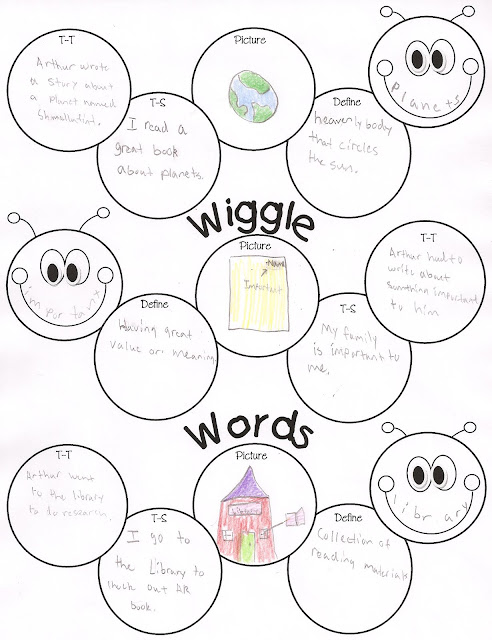 T-T
Arthur wrote
a story about
a planet named
Shmellafint.
T-S
I read a
great book
about planets.
Picture
Define
heavenly body
that circles
the sun.
planets
Wiggle
important
Define
Having great
value or meaning.
Picture
Name
Important
T-S
My family
is important to
me.
T-T
Arthur had to
write about
important
to him
Words
T-T
Arthur went
to the library
to do research.
T-S
I go to
the Library to
check out AR
book.
Picture
Library
Define
Collection of
reading materials
library